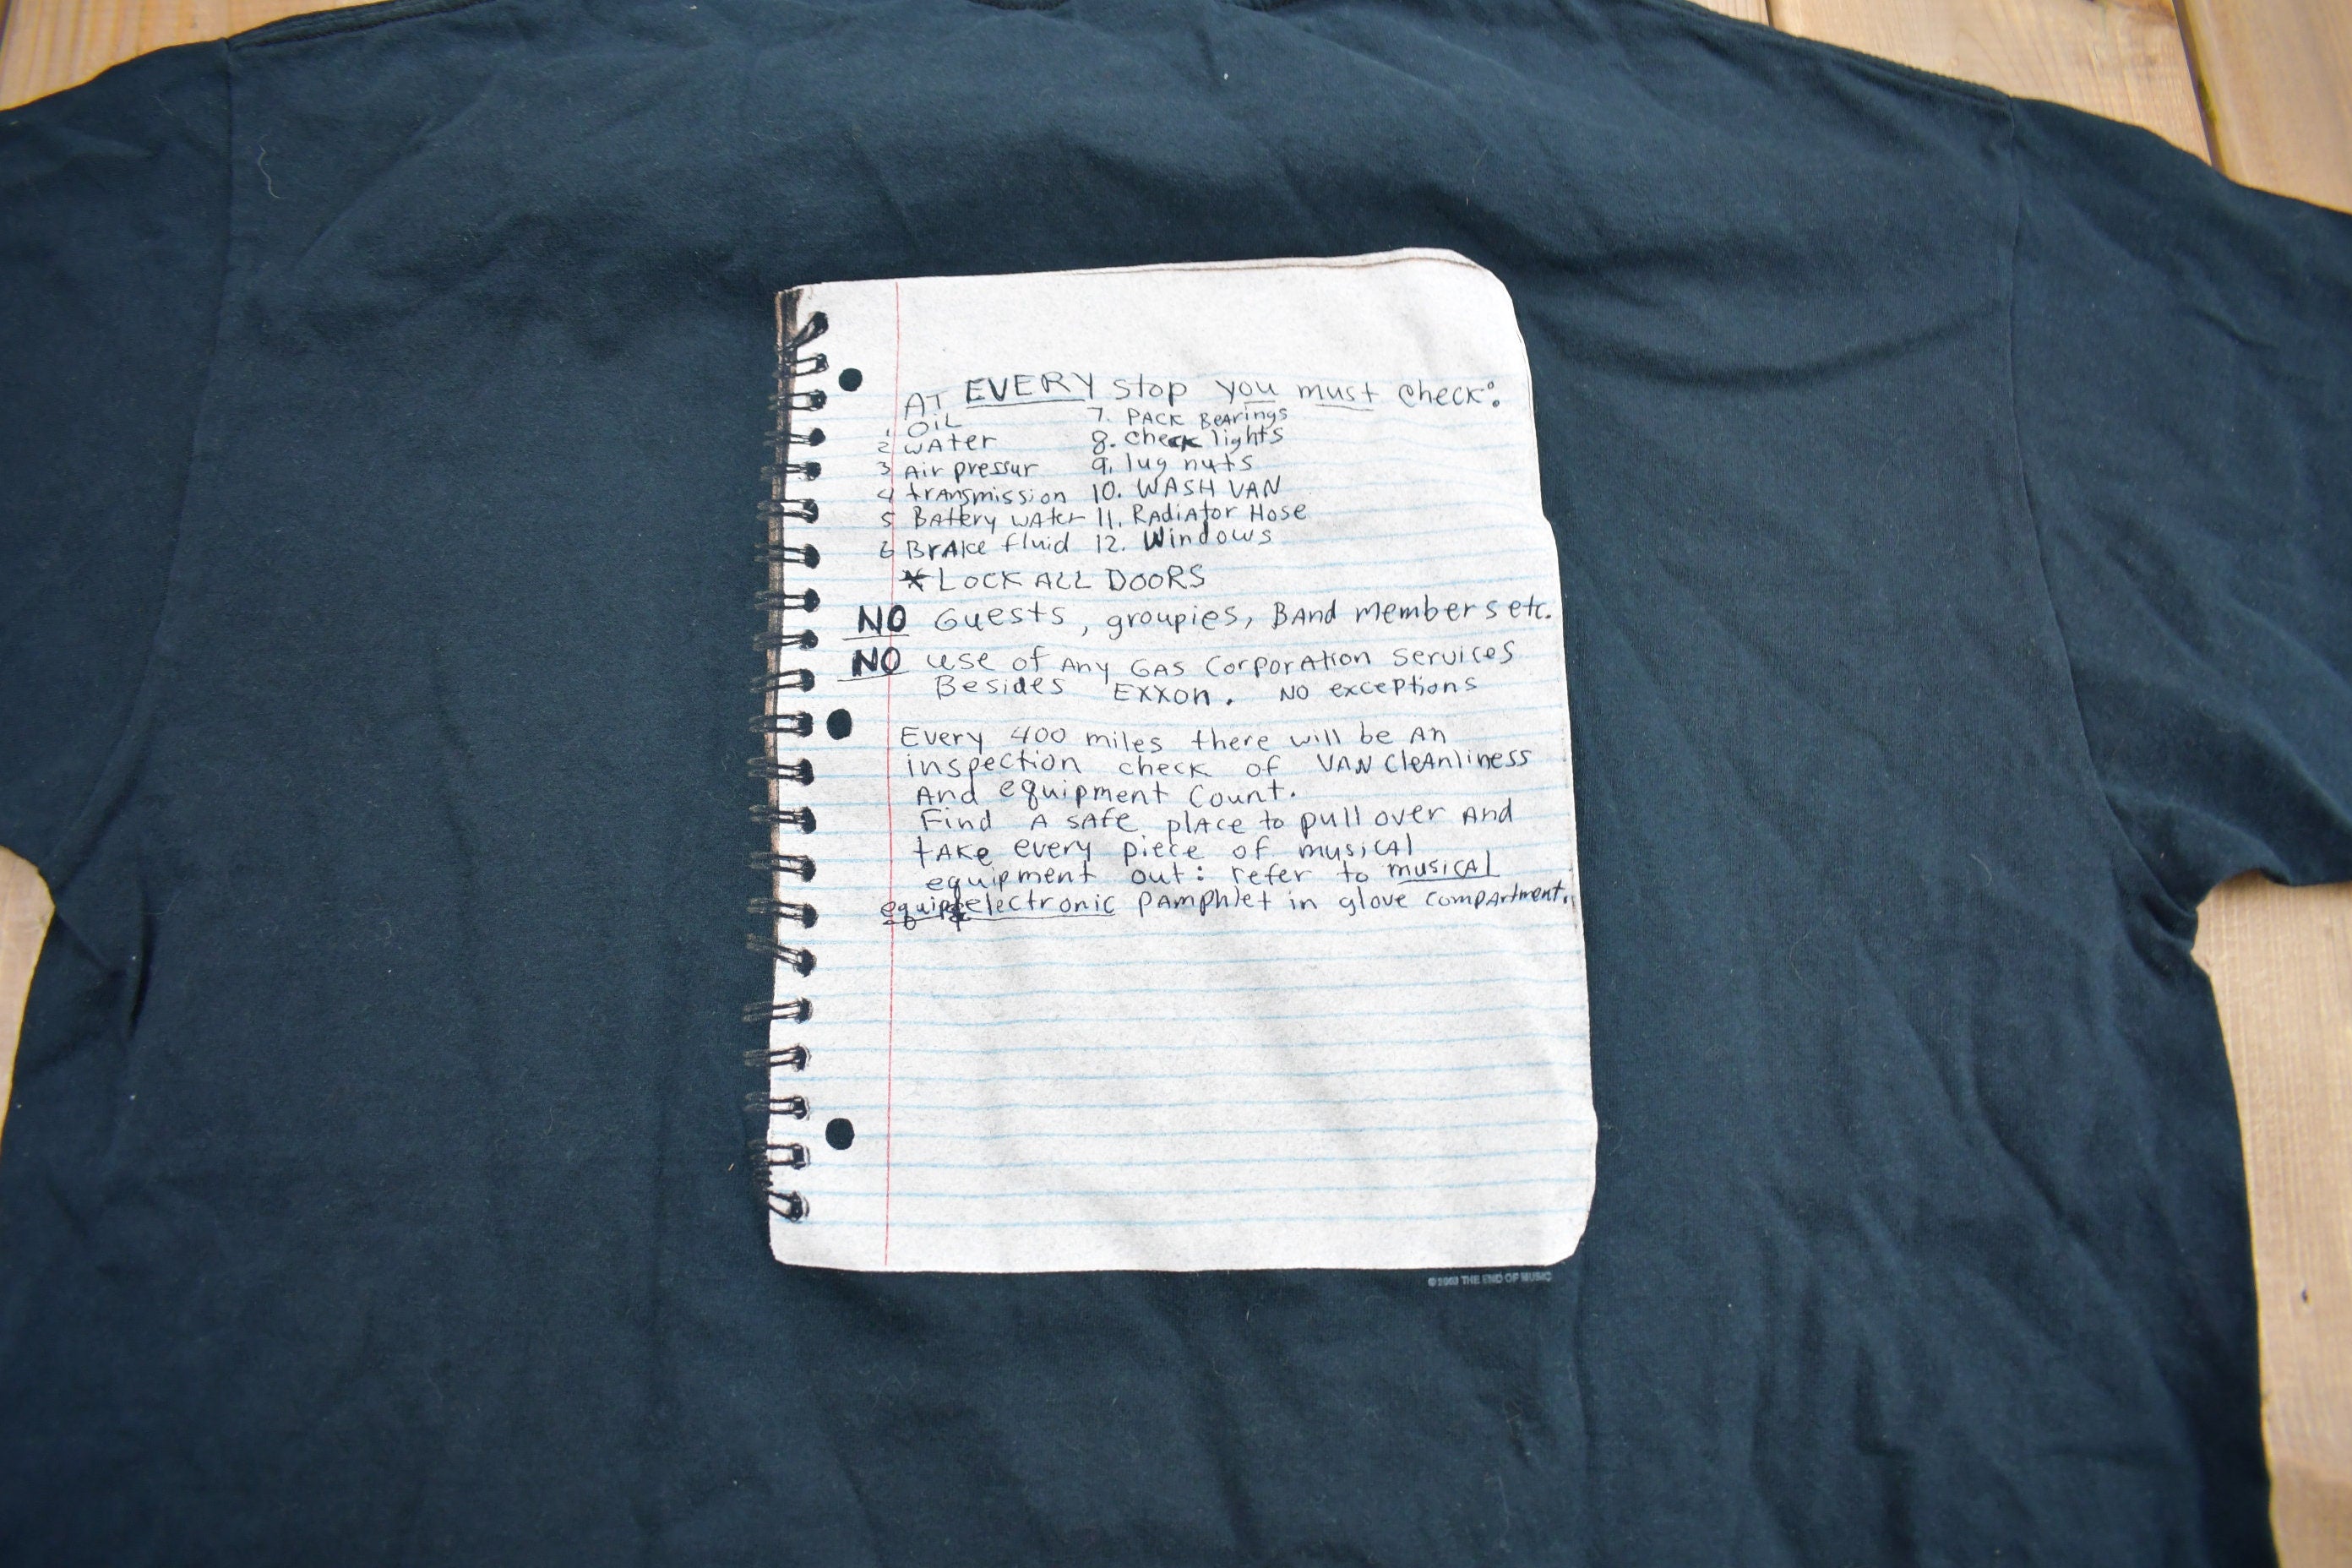 AT EVERY stop you must check:
1 OIL 7. PACK BeArings
2 wAter 8. check lights
3 Air pressur 9. lug nuts
4 trAnsmission 10. WASH VAN
5 BAttery wAter 11. RAdiAtor Hose
6 BrAke fluid 12. Windows
* LOCK ALL DOORS
NO Guests, groupies, BAnd members etc.
NO use of Any GAS CorporAtion services
Besides EXXon. NO exceptions
Every 400 miles there will be An
inspection check of VAN CleAnliness
And equipment Count.
Find A sAfe plAce to pull over And
tAke every piece of musicAl
equipment out: refer to musicAl
electronic pAmphlet in glove compArtment.
© THE END OF MUSIC